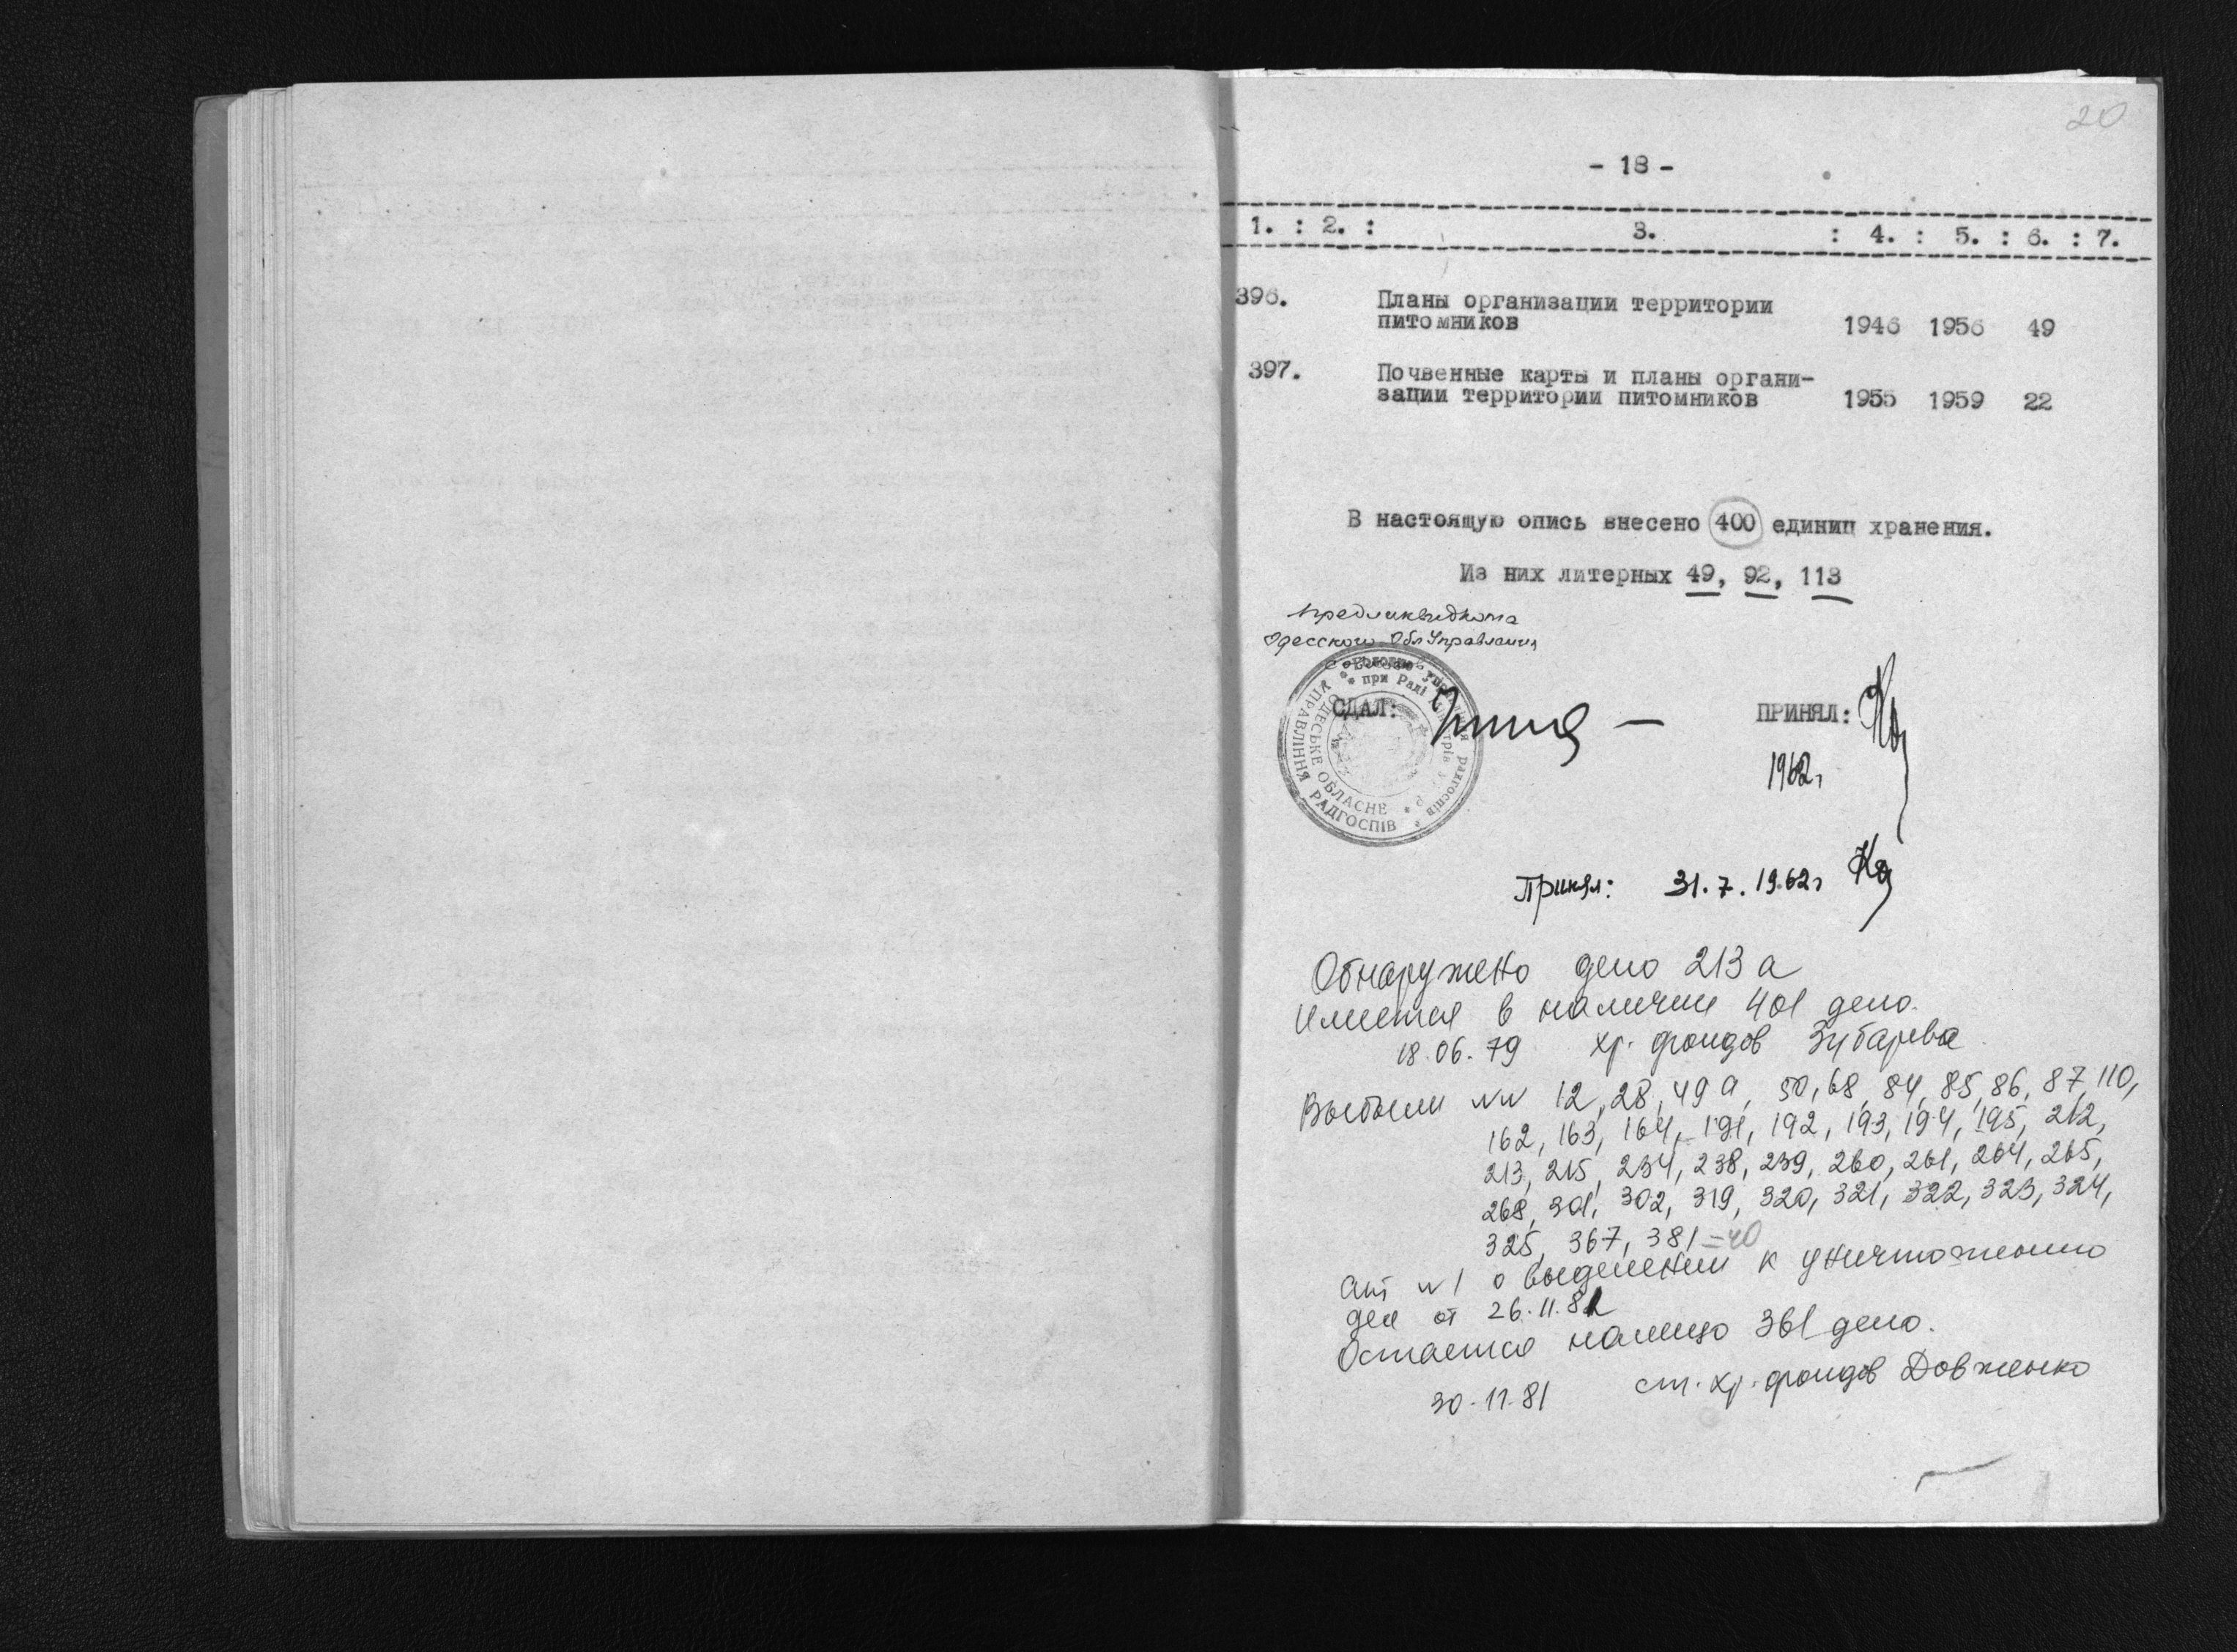 20
- 18 -
1. : 2. : 3. : 4. : 5. : 6. : 7.
396. Планы организации территории
питомников 1946 1956 49
397. Почвенные карты и планы органи-
зации территории питомников 1955 1959 22
В настоящую опись внесено 400 единиц хранения.
Из них литерных 49, 92, 113
Предликвидкома
Одесского Обл Управления
совхозов
СДАЛ: ПРИНЯЛ:
УПРАВЛІННЯ РАДГОСПІВ
ОДЕСЬКЕ ОБЛАСНЕ
при Раді
радгоспів
1962г
Принял: 31.7.1962г
Обнаружено дело 213 а
Имеется в наличии 401 дело.
18.06.79 хр. фондов Зубарева
Выбыли №№ 12, 28, 49 а, 50, 68, 84, 85, 86, 87, 110,
162, 163, 164, 191, 192, 193, 194, 195, 212,
213, 215, 234, 238, 239, 260, 261, 264, 265,
268, 301, 302, 319, 320, 321, 322, 323, 324,
325, 367, 381 = 40
Акт №1 о выделении к уничтожению
дел от 26.11.81
Остается налицо 361 дело.
30.11.81 ст. хр. фондов Довженко